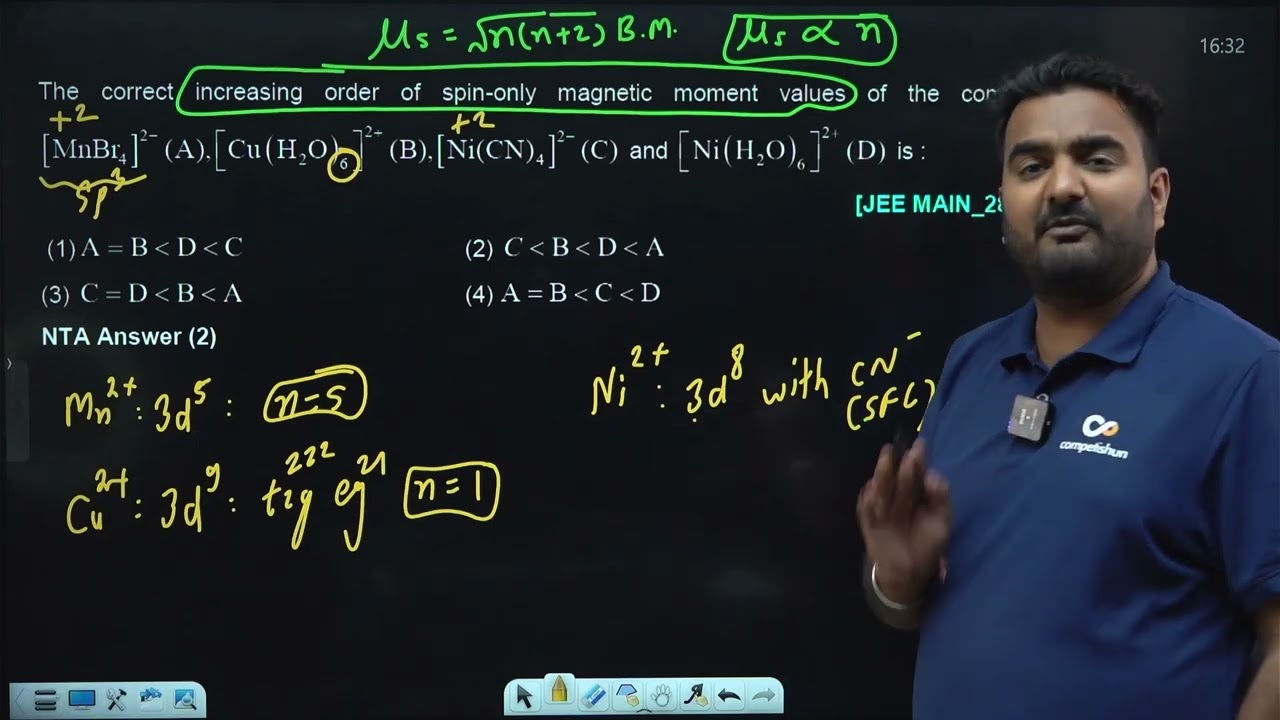 μs = √n(n+2) B.M. μs ∝ n
16:32
The correct increasing order of spin-only magnetic moment values of the
+2 +2
[MnBr₄]²⁻ (A), [Cu(H₂O)₆]²⁺ (B), [Ni(CN)₄]²⁻ (C) and [Ni(H₂O)₆]²⁺ (D) is :
sp³
[JEE MAIN_28
(1) A = B < D < C
(2) C < B < D < A
(3) C = D < B < A
(4) A = B < C < D
NTA Answer (2)
Mn²⁺ : 3d⁵ : n=5
Ni²⁺ : 3d⁸ with CN⁻
(SFL)
Cu²⁺ : 3d⁹ : t₂g²²² eg²¹ n=1
competishun